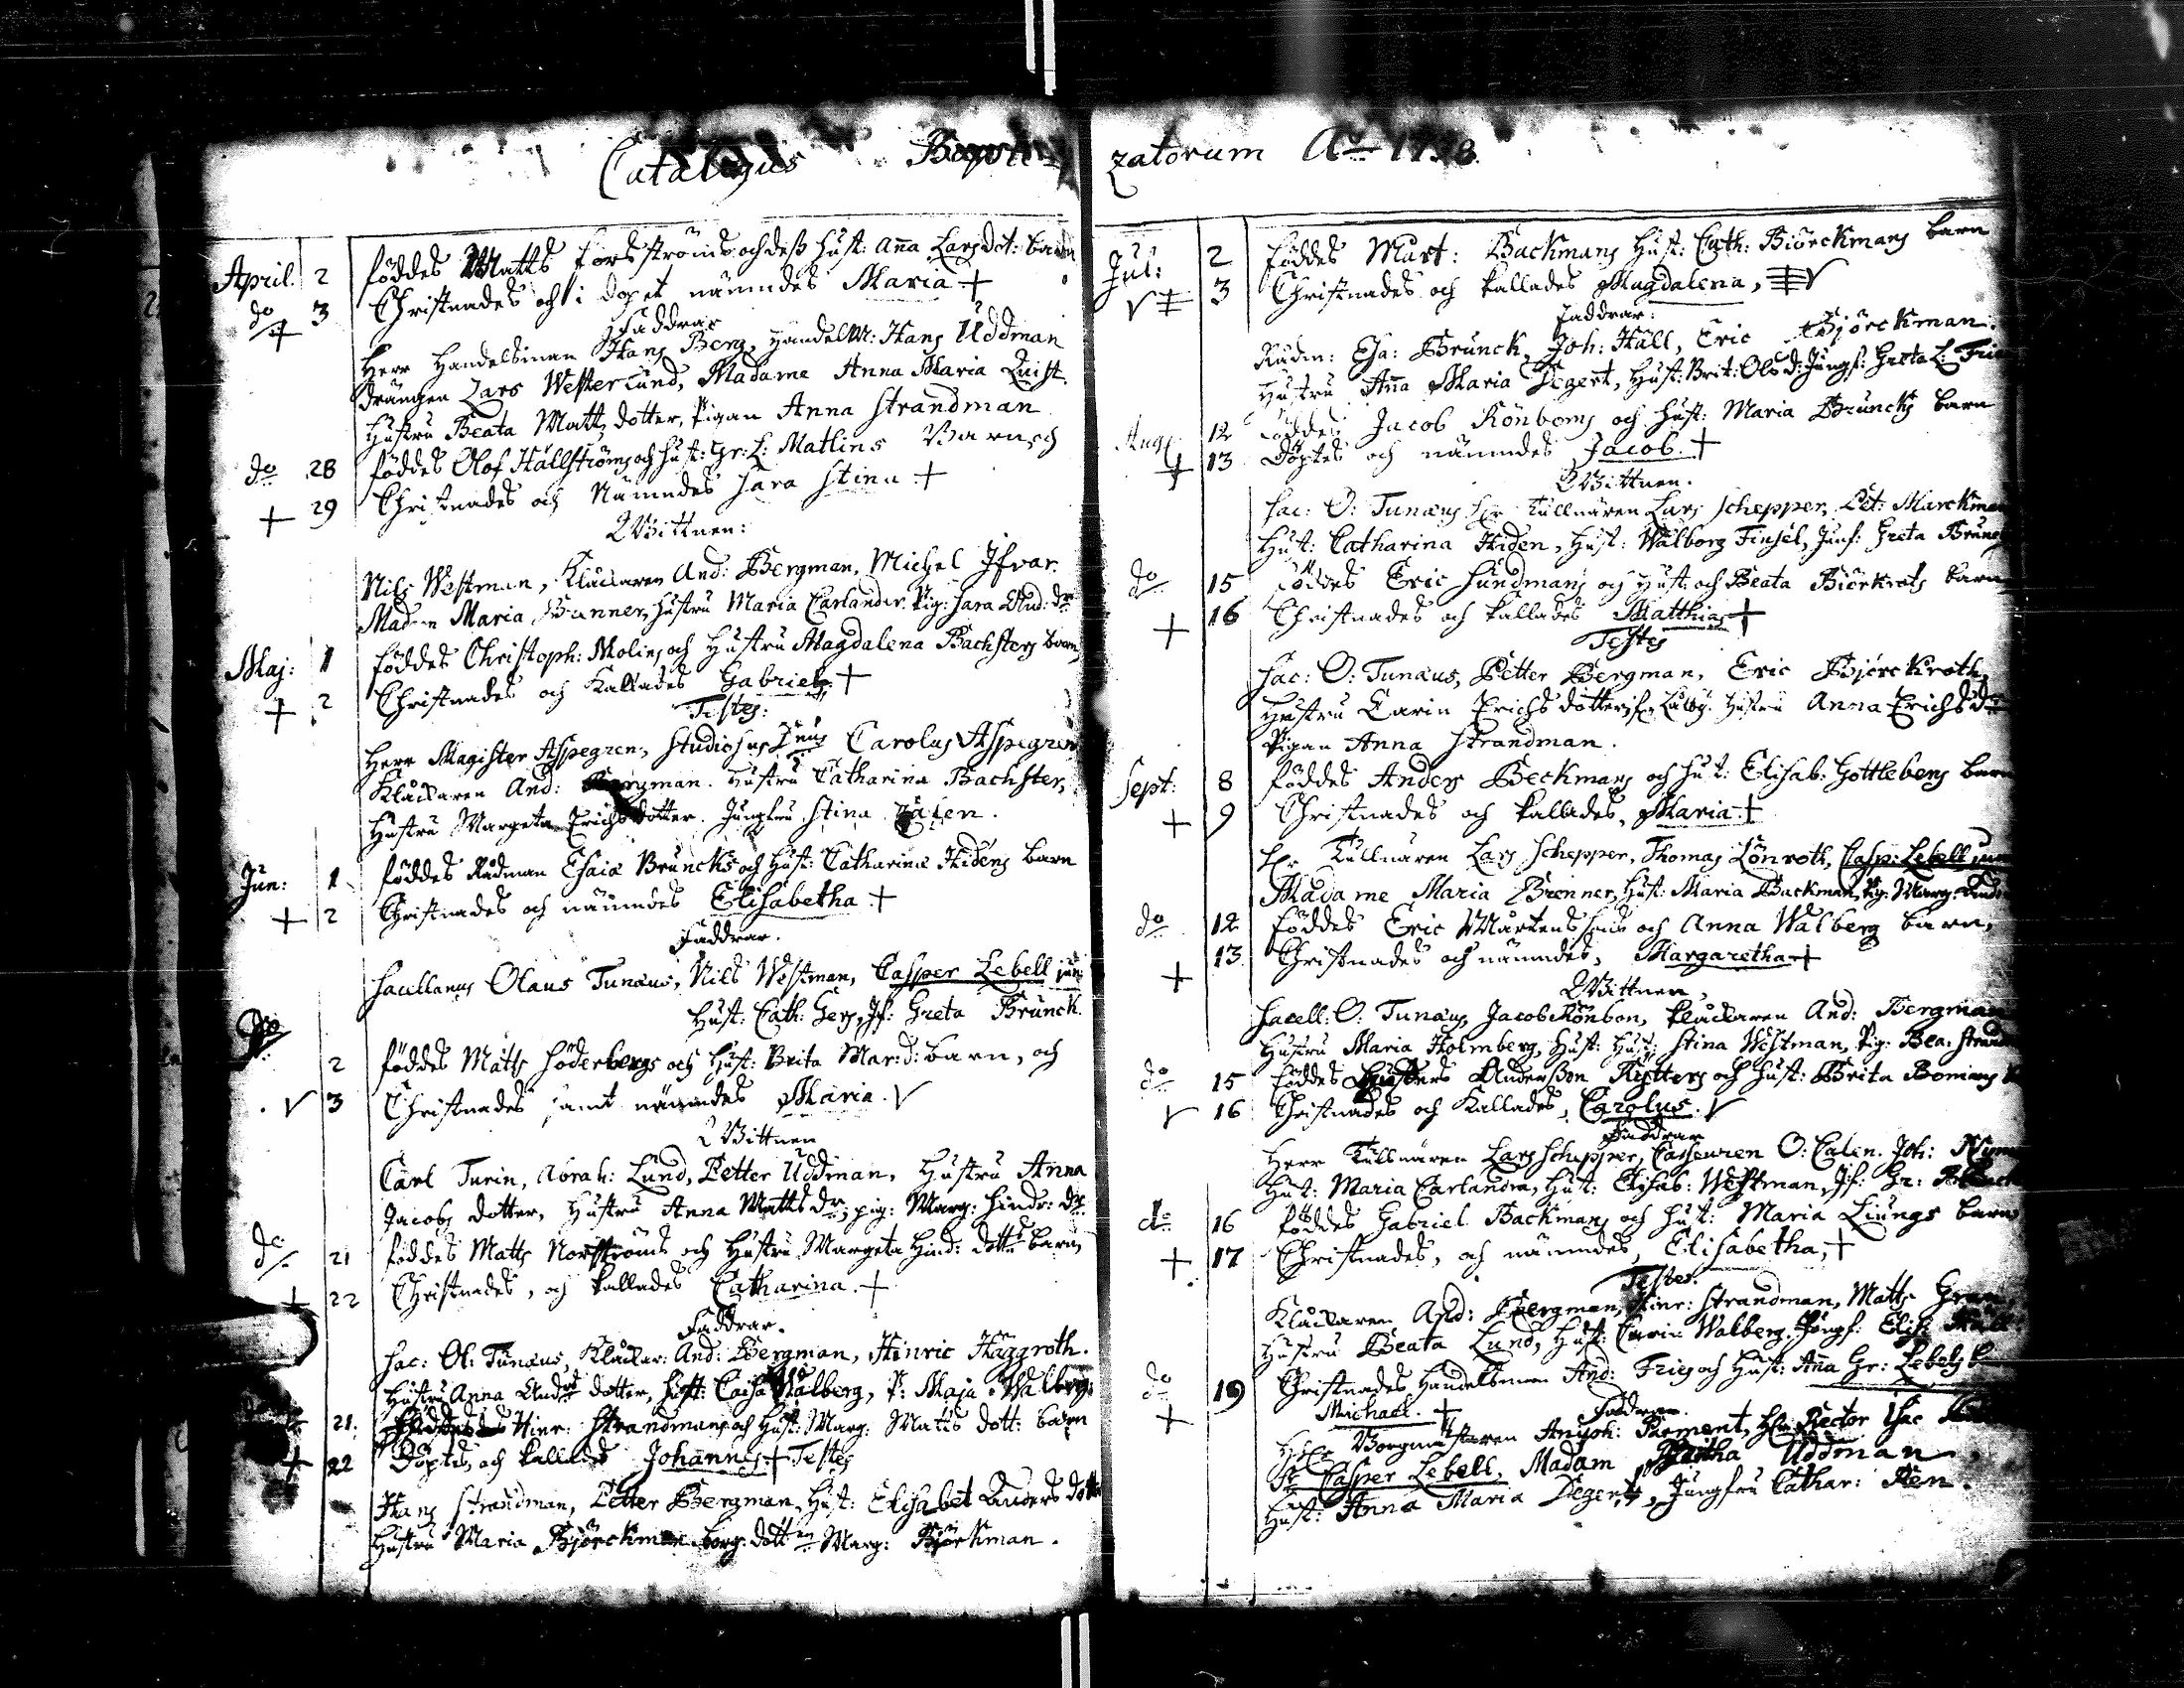 Catalogus Bapti
April. 2 föddes Matts Forsströms och dess Hust: Anna Larsdot: barn
do 3 Christnades och i dopet nämndes Maria +
+ Faddrar
Herr Handelsman Hans Berg, Handelm: Hans Uddman
drängen Lars Westerlund, Madame Anna Maria Quist.
Hustru Beata Matts dotter, Pigan Anna Strandman
do 28 föddes Olof Hällströms och Hust: Gr: L: Matlins Barn, och
+ 29 Christnades och Nämndes Sara Stina +
Wittnen:
Nils Westman, Klåckaren And: Bergman, Michel Ifvar.
Madam Maria Brenner, Hustru Maria Carlander. Pig: Sara And: dr
Maj: 1 föddes Christoph: Molins och Hustru Magdalena Bachsters barn,
+ 2 Christnades och Kallades Gabriel +
Testes:
Herr Magister Aspegren, Studiosus Carolus Aspegren
Klåckaren And: Bergman. Hustru Catharina Bachster,
Hustru Margeta Erichsdotter. Jungfru Stina Calen.
Jun: 1 föddes Rådman Esaiæ Bruncks och Hust: Catharina Hidens barn
+ 2 Christnades och nämndes Elisabetha +
Faddrar.
Sacellanus Olaus Tunæus, Nils Westman, Casper Lebell jun
Hust: Cath: Gers, Jf: Greta Brunck.
do 2 föddes Matts Söderbergs och Hust: Brita Mar: d: barn, och
√ 3 Christnades samt nämndes Maria. √
Wittnen
Carl Turin, Abrah: Lund, Petter Uddman, Hustru Anna
Jacobs dotter, Hustru Anna Matts dr, pig: Marg: Hindr: dr.
do 21 föddes Matts Norrströms och Hustru Margeta Hind: dotters barn,
+ 22 Christnades, och kallades Catharina. +
Faddrar.
Sac: Ol: Tunæus, Klåckar: And: Bergman, Hinric Häggroth.
Hustru Anna And: dotter, Hust: Caisa Walberg, P: Maja Walberg:
21. Hinr: Strandmans och Hust: Marg: Matts dott: barn
+ 22 Döptes, och kallades Johannes + Testes
Hans Strandman, Petter Bergman, Hust: Elisabet Anders dotter
Hustru Maria Björckman borg: dottren Marg: Björkman.
zatorum Ao 1738.
Jul: 2 föddes Mart: Backmans Hust: Cath: Biörckmans barn
√ ǂ 3 Christnades och kallades Magdalena, √
Faddrar:
Rådm: Esa: Brunck, Joh: Häll, Eric Björckman.
Hustru Anna Maria Degert, Hust: Brit: Ols d: Jungf: Greta L: Frie
Aug: 12 föddes Jacob Rönboms och Hust: Maria Bruncks barn
+ 13 Döptes och nämndes Jacob. +
Wittnen.
Sac: O: Tunæus Hr Tullnären Lars Schepper, Pet: Marckman
Hust: Catharina Hiden, Hust: Walborg Finsel, Junf: Greta Brunck
do 15 föddes Eric Sundmans och Hust. och Beata Biörkrots barn
+ 16 Christnades och kallades Matthias +
Testes
Sac: O: Tunæus, Petter Bergman, Eric Björckroth,
Hustru Carin Erichs dotter, Hustru Anna Erichs dr
Pigan Anna Strandman.
Sept: 8 föddes Anders Beckmans och Hust: Elisab: Gottlebens barn
+ 9 Christnades och kallades, Maria +
Hr Tullnären Lars Schepper, Thomas Lönroth, Casp: Lebell jun
Madame Maria Brenner, Hust: Maria Backman, Pig: Marg:
do 12 föddes Eric Mårtenssons och Anna Walberg barn,
+ 13 Christnades och nämndes, Margaretha +
Wittnen,
Sacell: O: Tunæus, Jacob Rönbon, klåckaren And: Bergman
Hustru Maria Holmberg, Hust: Hust: Stina Westman, Pig: Bea: Strand
do 15 föddes Andersson Rytters och Hust: Brita Bomans
√ 16 Christnades och Kallades, Carolus. √
Faddrar
Herr Tullnären Lars Schepper, Casseuren O: Calen. Joh:
Hust: Maria Carlandra, Hust: Elisab: Westman, Jf: Gr: Brunck
do 16 föddes Gabriel Backmans och Hust: Maria Liungs barn
+ 17 Christnades, och nämndes, Elisabetha, +
Testes.
Klåckaren And: Bergman, Hinr: Strandman, Matts Gran
Hustru Beata Lund, Hust: Carin Walberg, Jungf: Elis:
do 19 Christnades Handelsman And: Fries och Hust: Anna Gr: Lebels
+ Michael. + Faddrar.
Borgmästaren Joh: Parment, Hr Rector Isac
Hr Casper Lebell, Madam Uddman
Hust: Anna Maria Degert, Jungfru Cathar: Ren.